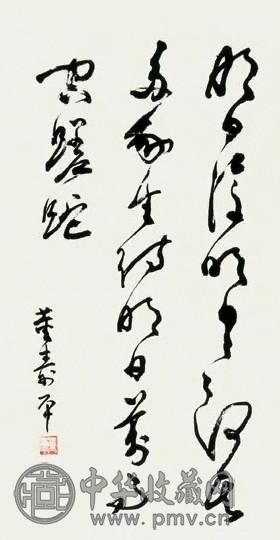 明日復明日々何其
多我生待明日萬事
空蹉跎
董壽平
中华收藏网
www.pmv.cn